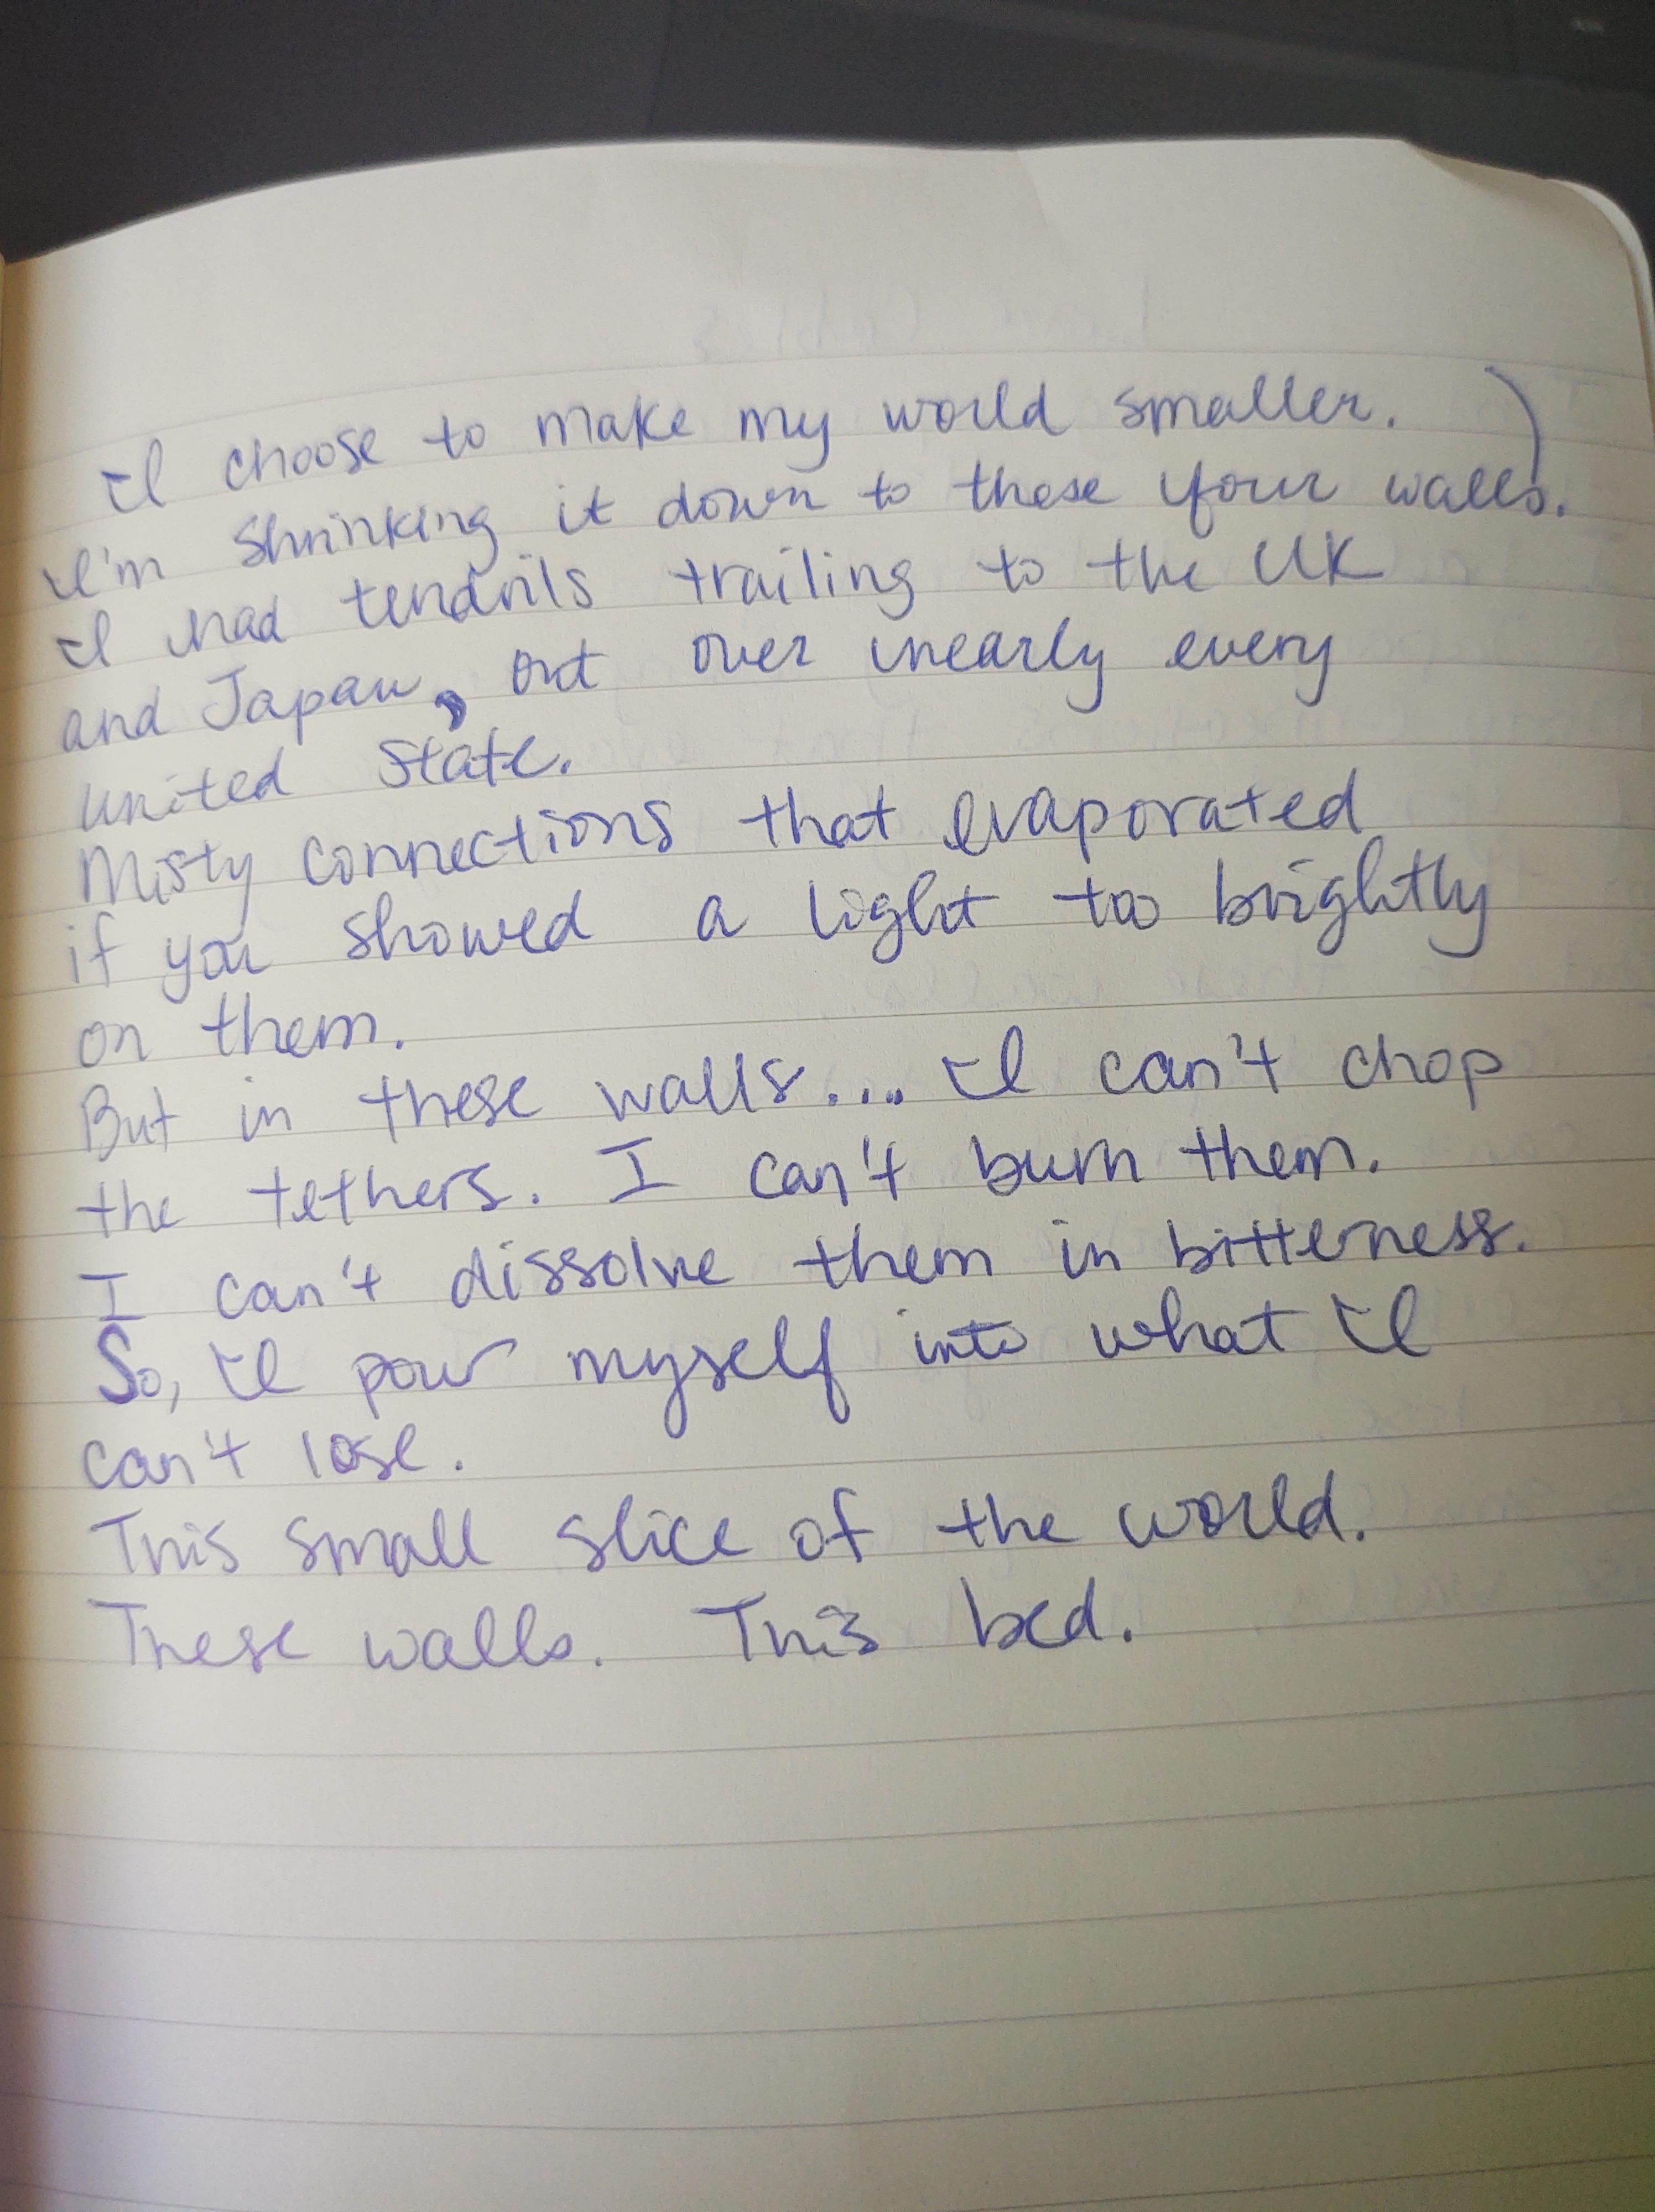 I choose to make my world smaller.
I'm shrinking it down to these four walls.
I had tendrils trailing to the UK
and Japan, out over nearly every
united state.
Misty connections that evaporated
if you showed a light too brightly
on them.
But in these walls.... I can't chop
the tethers. I can't burn them.
I can't dissolve them in bitterness.
So, I pour myself into what I
can't lose.
This small slice of the world.
These walls. This bed.